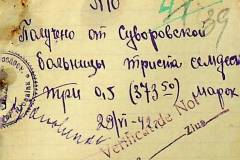 №10
39
Получено от Суворовской
больницы триста семдесят
три 0,5 (373 50) марок
29/VI-42
Verificat de Noi
Ziua